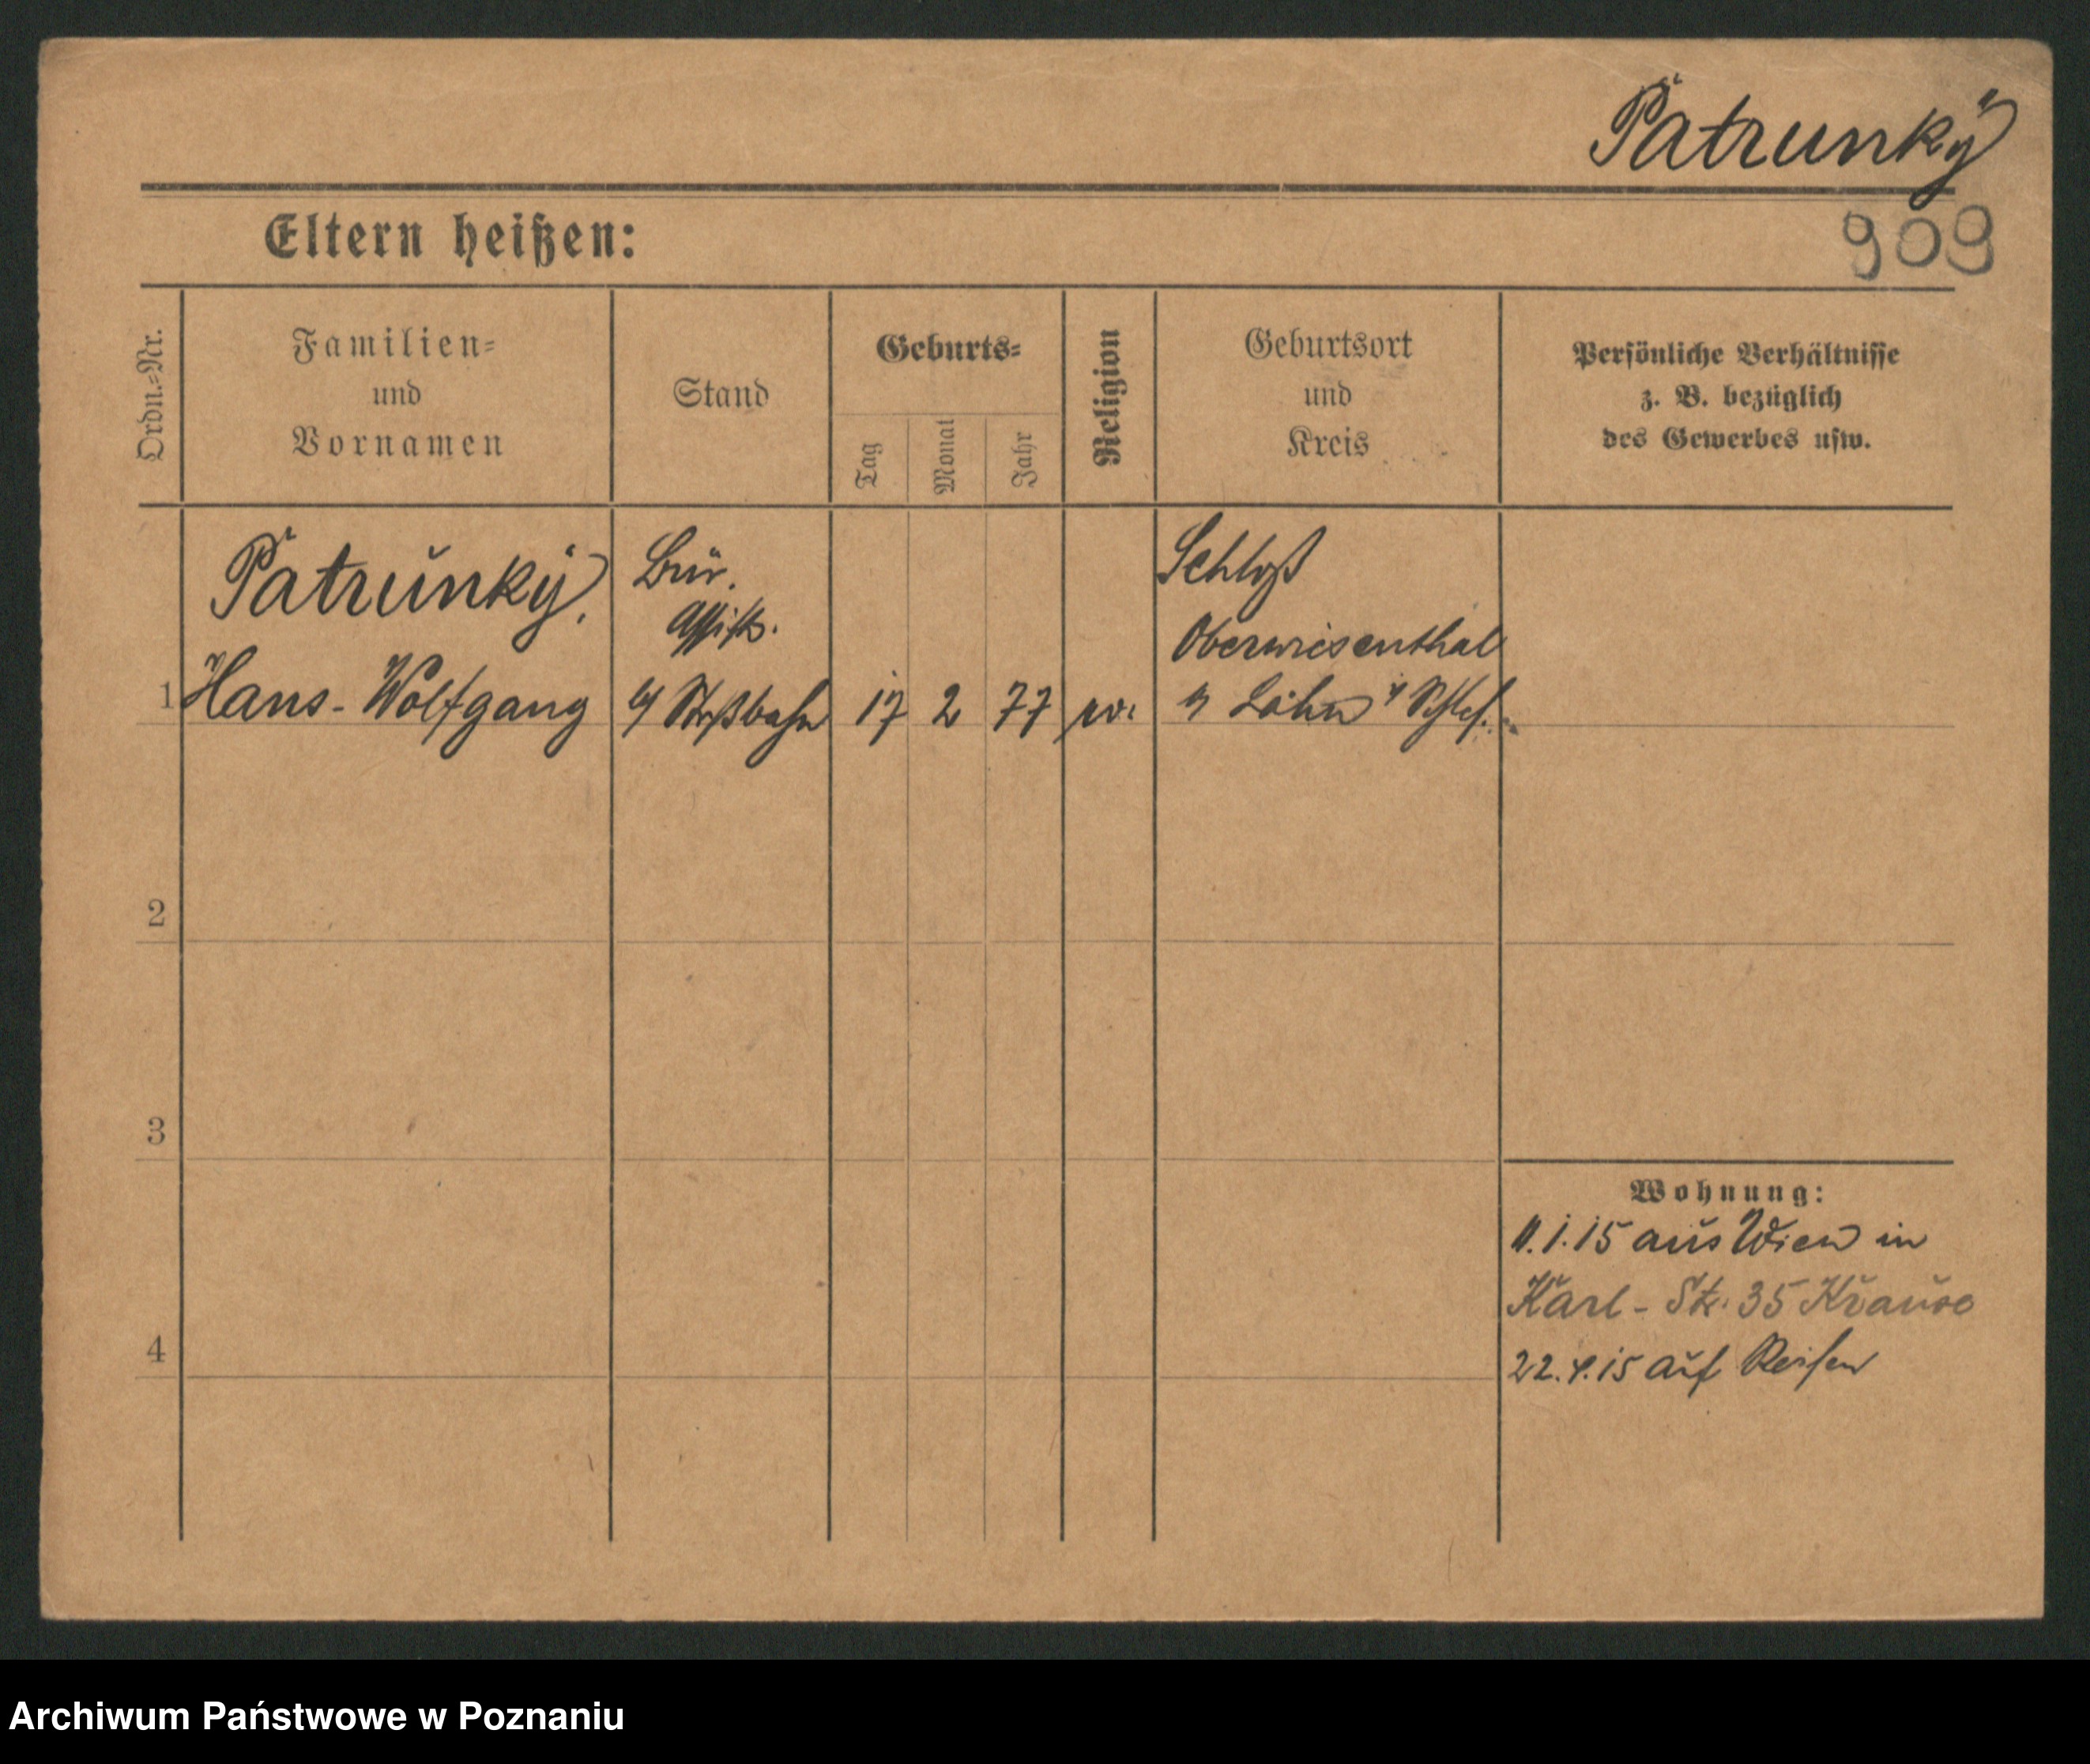 Patrunky
Eltern heißen:
909
Ordn.=Nr.
Familien=
und
Vornamen
Stand
Geburts=
Tag
Monat
Jahr
Religion
Geburtsort
und
Kreis
Persönliche Verhältnisse
z. B. bezüglich
des Gewerbes usw.
Patrunky,
Hans-Wolfgang
Bür.
Assist.
Strßbahn
1
17 2 77
ev.
Schloß
Oberwiesenthal
Lähn Schles.
2
3
4
Wohnung:
11.1.15 aus Wien in
Karl-Str. 35 Krause
22.4.15 auf Reisen
Archiwum Państwowe w Poznaniu